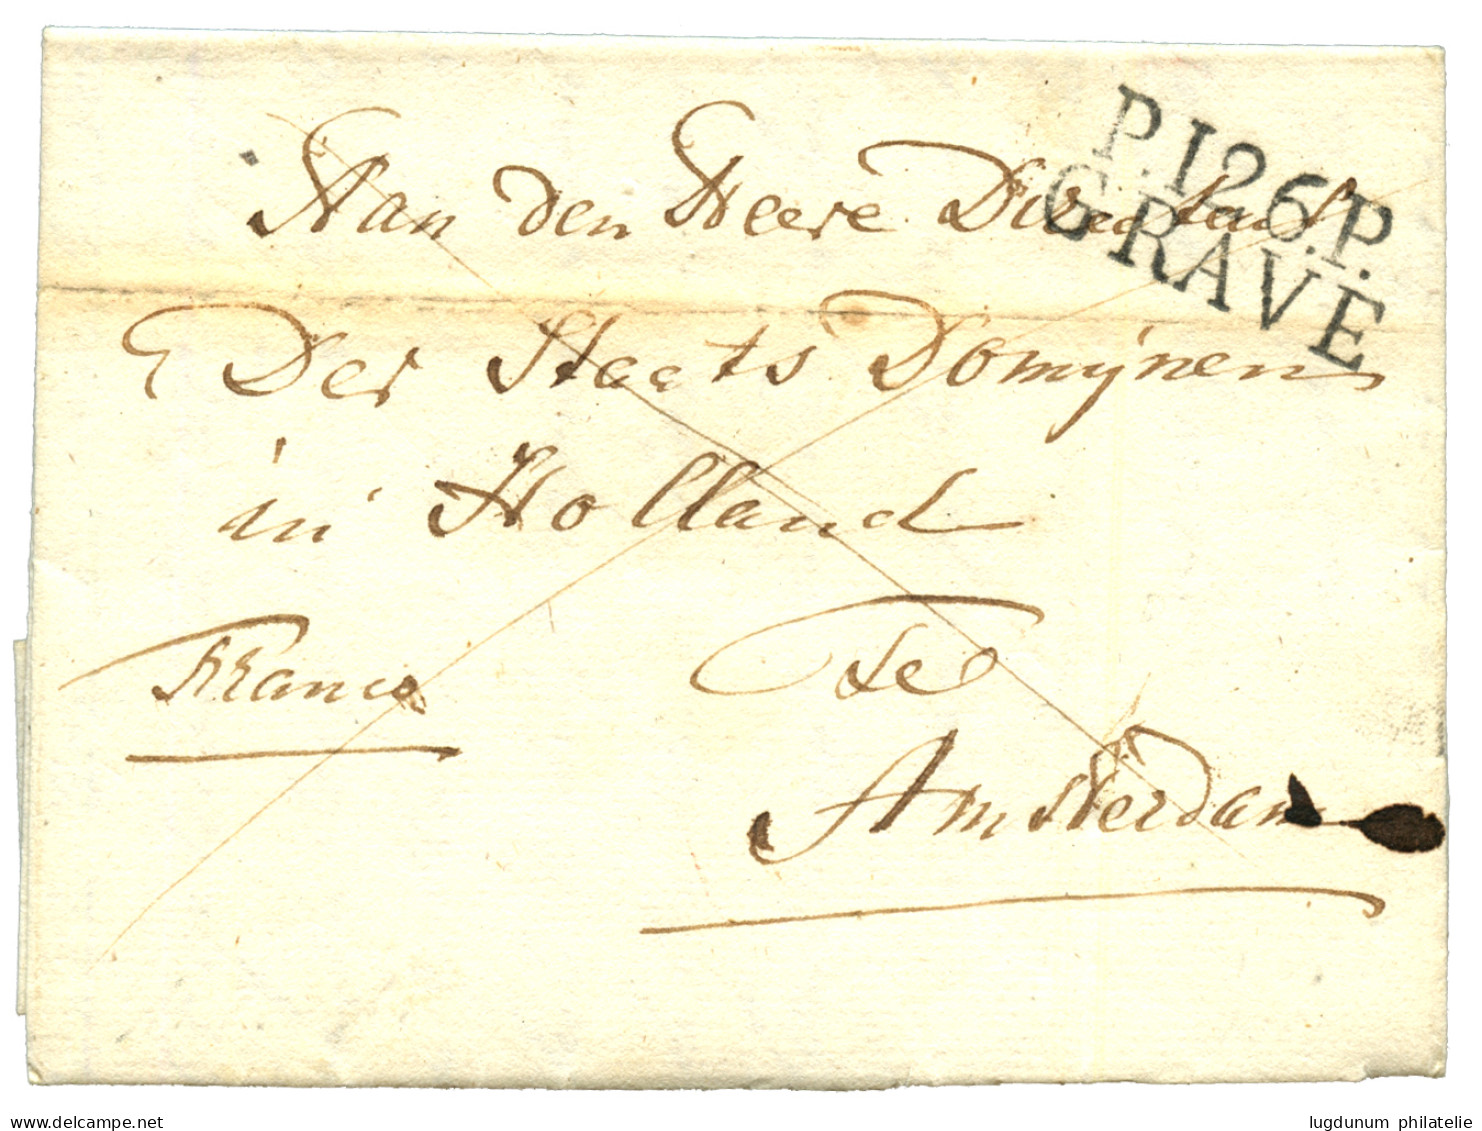 P.126.P.
GRAVE
Aan den Heere Directeur
Der Staats Domynen
in Holland
Franco
te
Amsterdam
delcampe.net
lugdunum philatelie